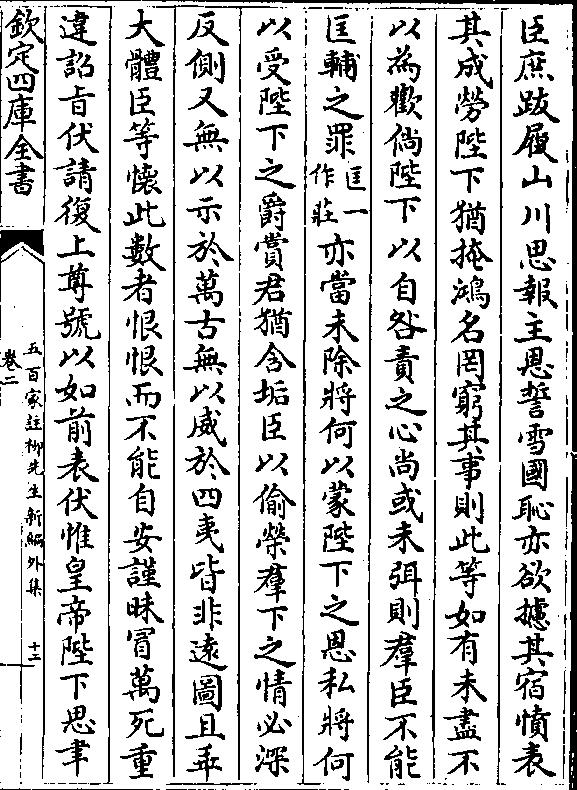 臣庶跋履山川思報主恩誓雪國恥亦欲攄其宿憤表
其成勞陛下猶掩鴻名罔窮其事則此等如有未盡不
以為歡倘陛下以自咎責之心尚或未弭則羣臣不能
匡輔之罪匡一作莊亦當未除將何以蒙陛下之恩私將何
以受陛下之爵賞君猶含垢臣以偷榮羣下之情必深
反側又無以示於萬古無以威於四夷皆非遠圖且乖
大體臣等懷此數者恨恨而不能自安謹昧冒萬死重
違詔旨伏請復上尊號以如前表伏惟皇帝陛下思聿
欽定四庫全書
五百家註柳先生新編外集
卷二
十二